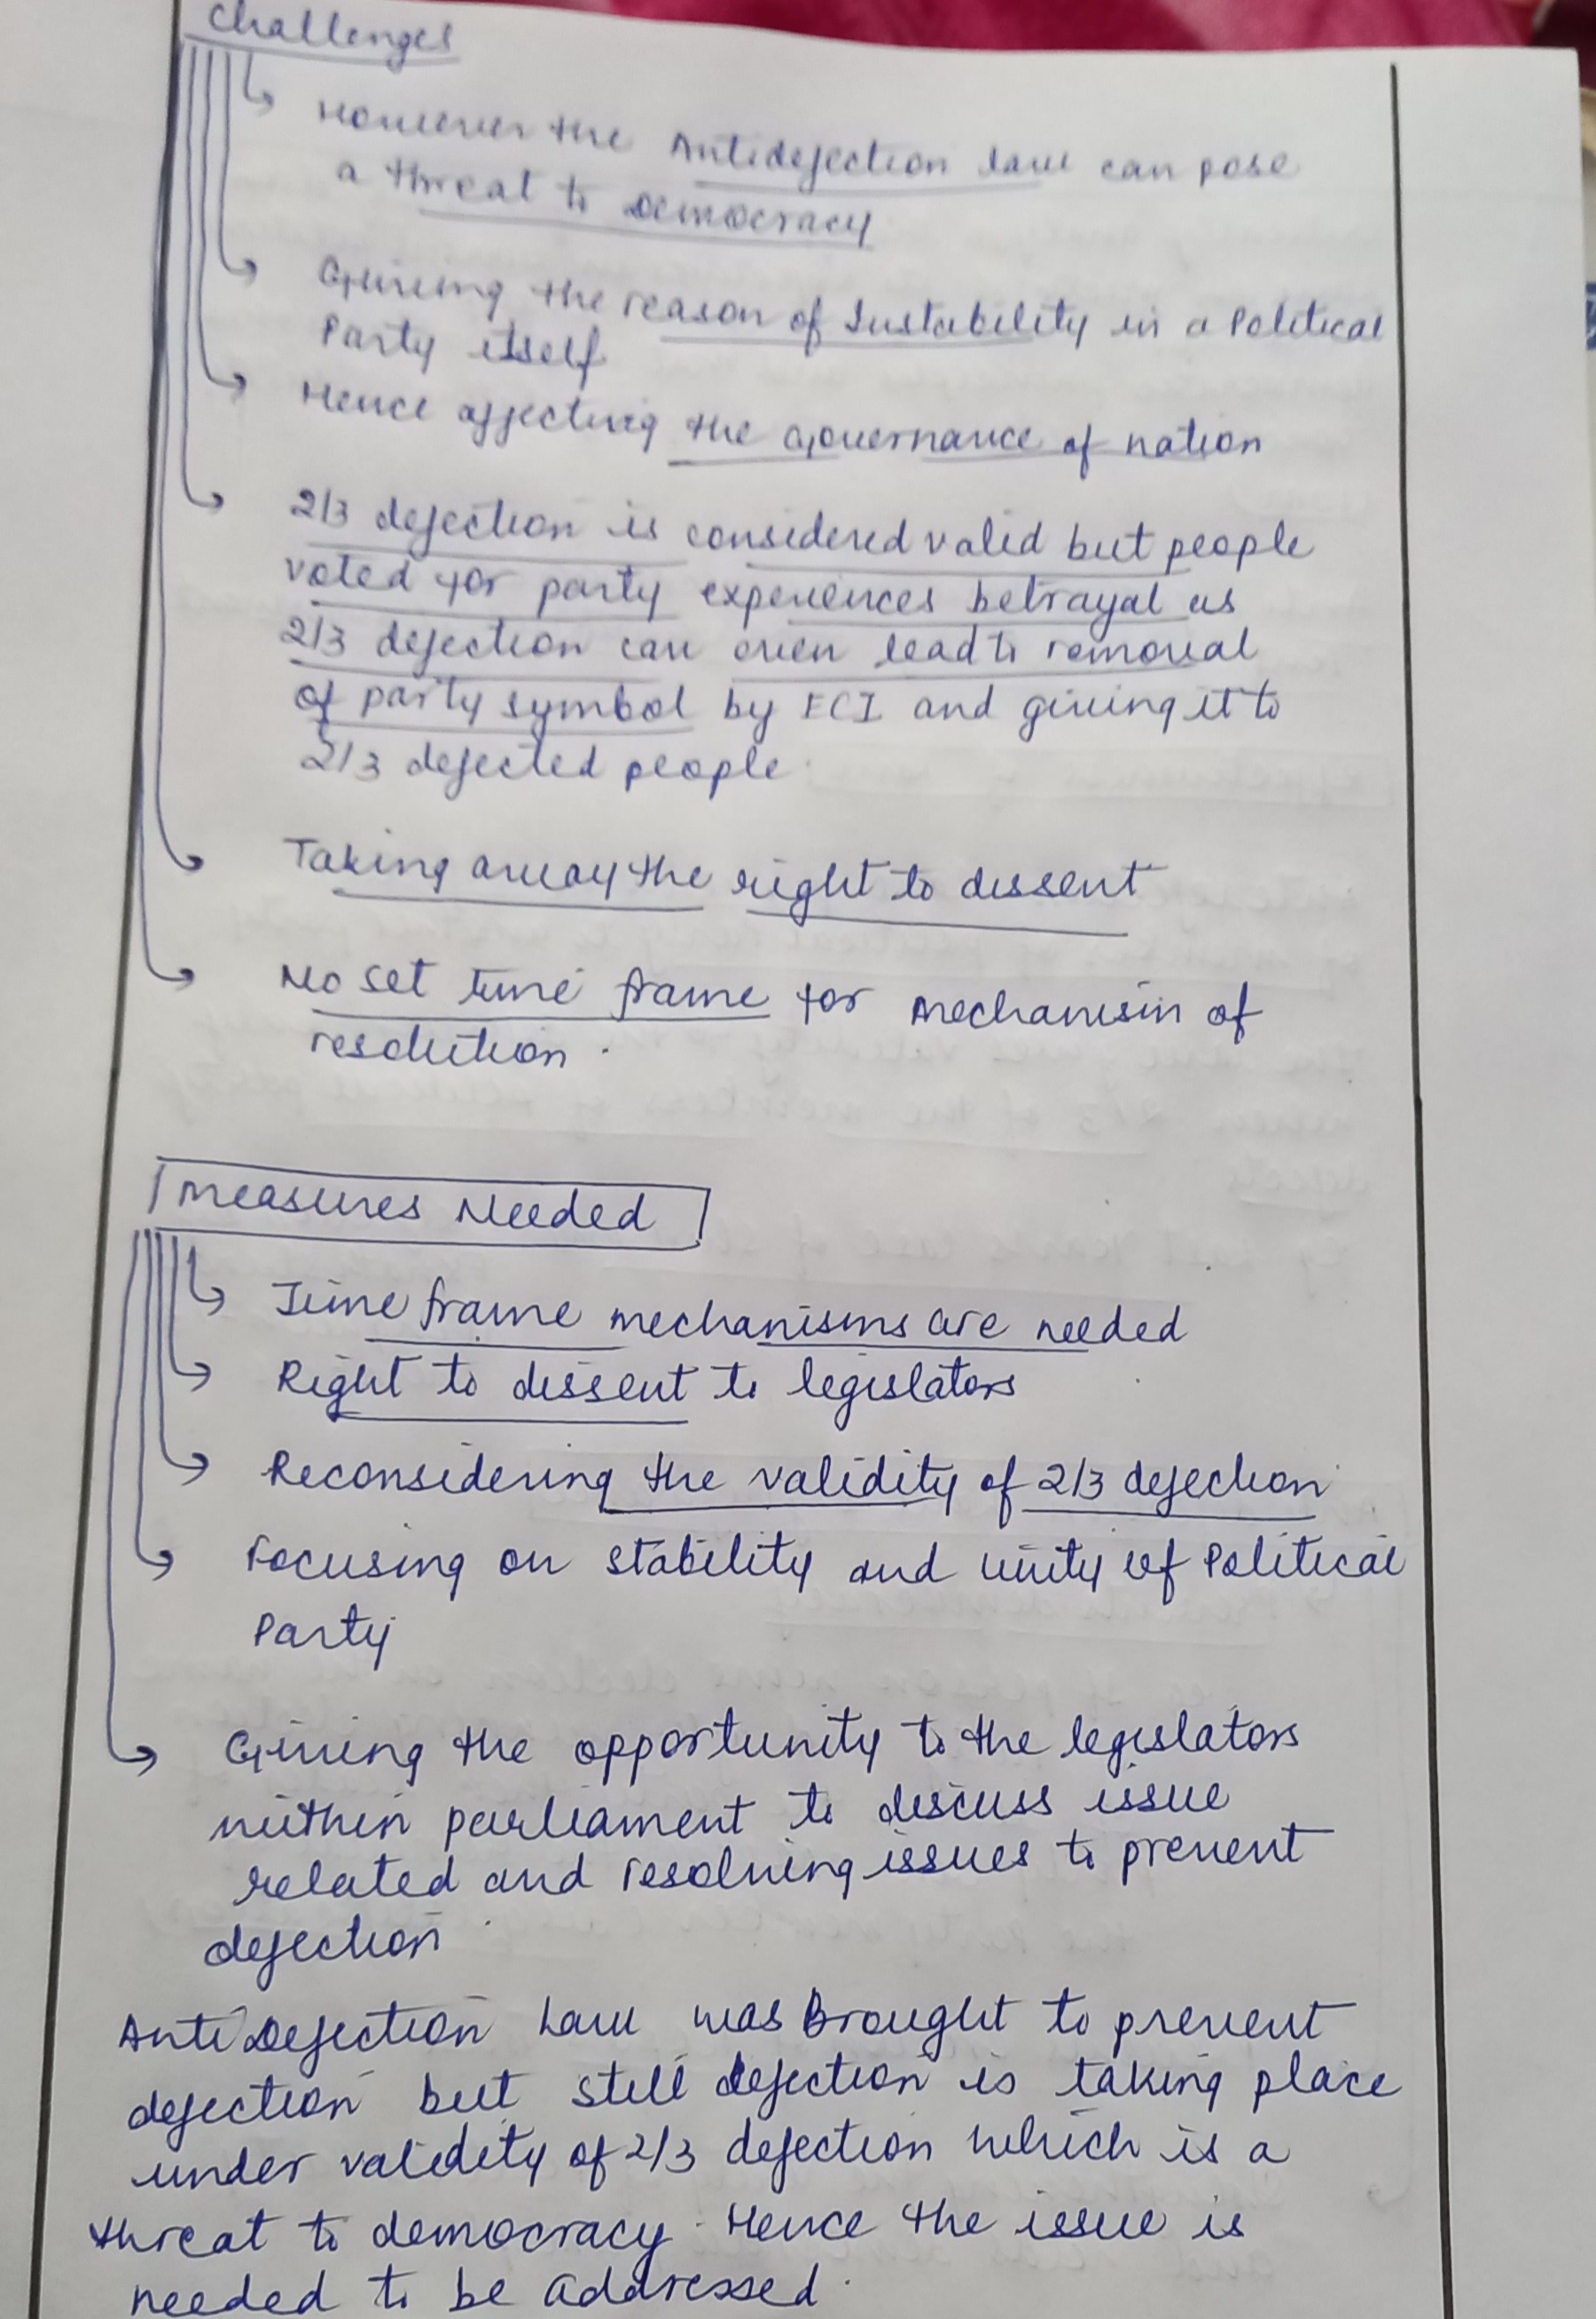 Challenges
However the Antidefection law can pose
a threat to Democracy
Giving the reason of Instability in a Political
Party itself
Hence affecting the Governance of nation
2/3 defection is considered valid but people
voted for party experiences betrayal as
2/3 defection can even lead to removal
of party symbol by ECI and giving it to
2/3 defected people
Taking away the right to dissent
No set time frame for mechanism of
resolution.
Measures Needed
Time frame mechanisms are needed
Right to dissent to legislators
Reconsidering the validity of 2/3 defection
Focusing on stability and unity of Political
Party
Giving the opportunity to the legislators
within parliament to discuss issue
related and resolving issues to prevent
defection.
Anti Defection Law was Brought to prevent
defection but still defection is taking place
under validity of 2/3 defection which is a
threat to democracy. Hence the issue is
needed to be Addressed.